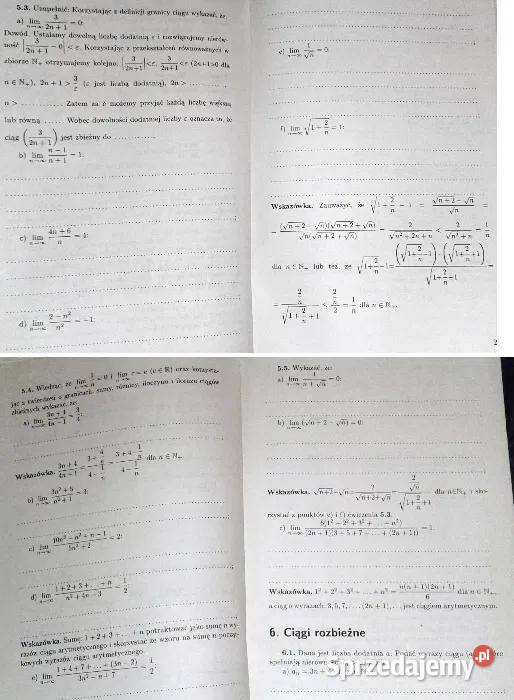 5.3. Uzupełnić: Korzystając z definicji granicy ciągu wykazać, że:
a) lim n→∞ 3/(2n+1) = 0.
Dowód. Ustalamy dowolną liczbę dodatnią ε i rozwiązujemy nierów-
ność |3/(2n+1) − 0| < ε. Korzystając z przekształceń równoważnych w
zbiorze N₊ otrzymujemy kolejno: |3/(2n+1)| < ε, 3/(2n+1) < ε (2n+1>0 dla
n ∈ N₊), 2n + 1 > 3/ε (ε jest liczbą dodatnią), 2n > ........
n > .......... Zatem za δ możemy przyjąć każdą liczbę większą
lub równą ...... Wobec dowolności dodatniej liczby ε oznacza to, że
ciąg (3/(2n+1)) jest zbieżny do ..........
b) lim n→∞ (n−1)/(n+1) = 1:
c) lim n→∞ (4n+6)/n = 4:
d) lim n→∞ (2−n²)/n² = −1:
e) lim n→∞ 1/√n = 0:
f) lim n→∞ √(1+2/n) = 1:
Wskazówka. Zauważyć, że √(1+2/n) − 1 = (√(n+2) − √n)/√n =
= (√(n+2) − √n)(√(n+2) + √n)/(√n(√(n+2) + √n)) = 2/(√(n²+2n) + n) < 2/(√n² + n) = 1/n
dla n ∈ N₊ lub też, że √(1+2/n) − 1 = (√(1+2/n) − 1)·(√(1+2/n) + 1)/(√(1+2/n) + 1) =
= (2/n)/(√(1+2/n) + 1) < (2/n)/2 = 1/n dla n ∈ N₊.
2
5.4. Wiedząc, że lim n→∞ 1/n = 0 i lim n→∞ c = c (c ∈ R) oraz korzysta-
jąc z twierdzeń o granicach: sumy, różnicy, iloczynu i ilorazu ciągów
zbieżnych wykazać, że:
a) lim n→∞ (3n+4)/(4n−1) = 3/4:
Wskazówka. dla n ∈ N₊.
b) lim n→∞ (3n²+5)/(n²+1) = 3:
c) lim n→∞ = 2:
d) lim n→∞ (1+2+3+...+n)/(n²+4n−3) = 1/2:
Wskazówka. Sumę: 1+2+3+...+n potraktować jako sumę n wy-
razów ciągu arytmetycznego i skorzystać ze wzoru na sumę n początkowych wyrazów ciągu arytmetycznego.
e) lim n→∞ (1+4+7+...+(3n−2))/(3n²−n+7) = 1/2:
5.5. Wykazać, że:
a) lim n→∞ 1/(n+√n) = 0:
b) lim n→∞ (√(n+2) − √n) = 0:
Wskazówka. √(n+2) − √n = 2/(√(n+2)+√n) = (2/√n)/(√(1+2/n)+1) dla n∈N₊ i sko-
rzystać z punktów e) i f) ćwiczenia 5.3.
c) lim n→∞ 6(1²+2²+3²+...+n²)/((2n+1)(3+5+7+...+(2n+1))) = 1:
Wskazówka. 1²+2²+3²+...+n² = n(n+1)(2n+1)/6 dla n ∈ N₊,
a ciąg o wyrazach: 3, 5, 7, ..., (2n+1), ... jest ciągiem arytmetycznym.
6. Ciągi rozbieżne
6.1. Dana jest liczba dodatnia a. Podać wyrazy ciągu
spełniają nierówn
a) aₙ = 3n +
Sprzedajemy.pl